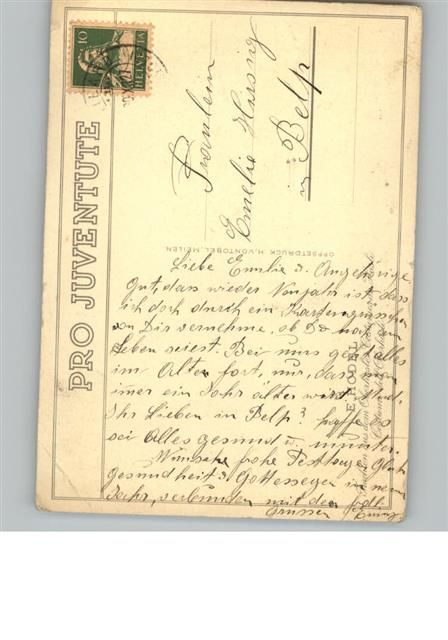 10
HELVETIA
PRO JUVENTUTE
Fräulein
Emelie
in Belp
OFFSETDRUCK H. VONTOBEL, MEILEN
E. HODEL
Liebe Emilie u. Angehörige
Gut, dass wieder Neujahr ist, dass
ich doch durch ein Kartengrüsschen
von Dir vernehme, ob Du noch am
Leben seiest. Bei uns geht alles
im Alten fort, nur, dass man
imer ein Jahr älter wird. Und
Ihr Lieben in Belp? hoffe es
sei Alles gesund u. munter.
Wünsche frohe Festtage Glück
gesundheit u. Gottessegen im neuen
Jahr, verbunden mit den
Grüssen